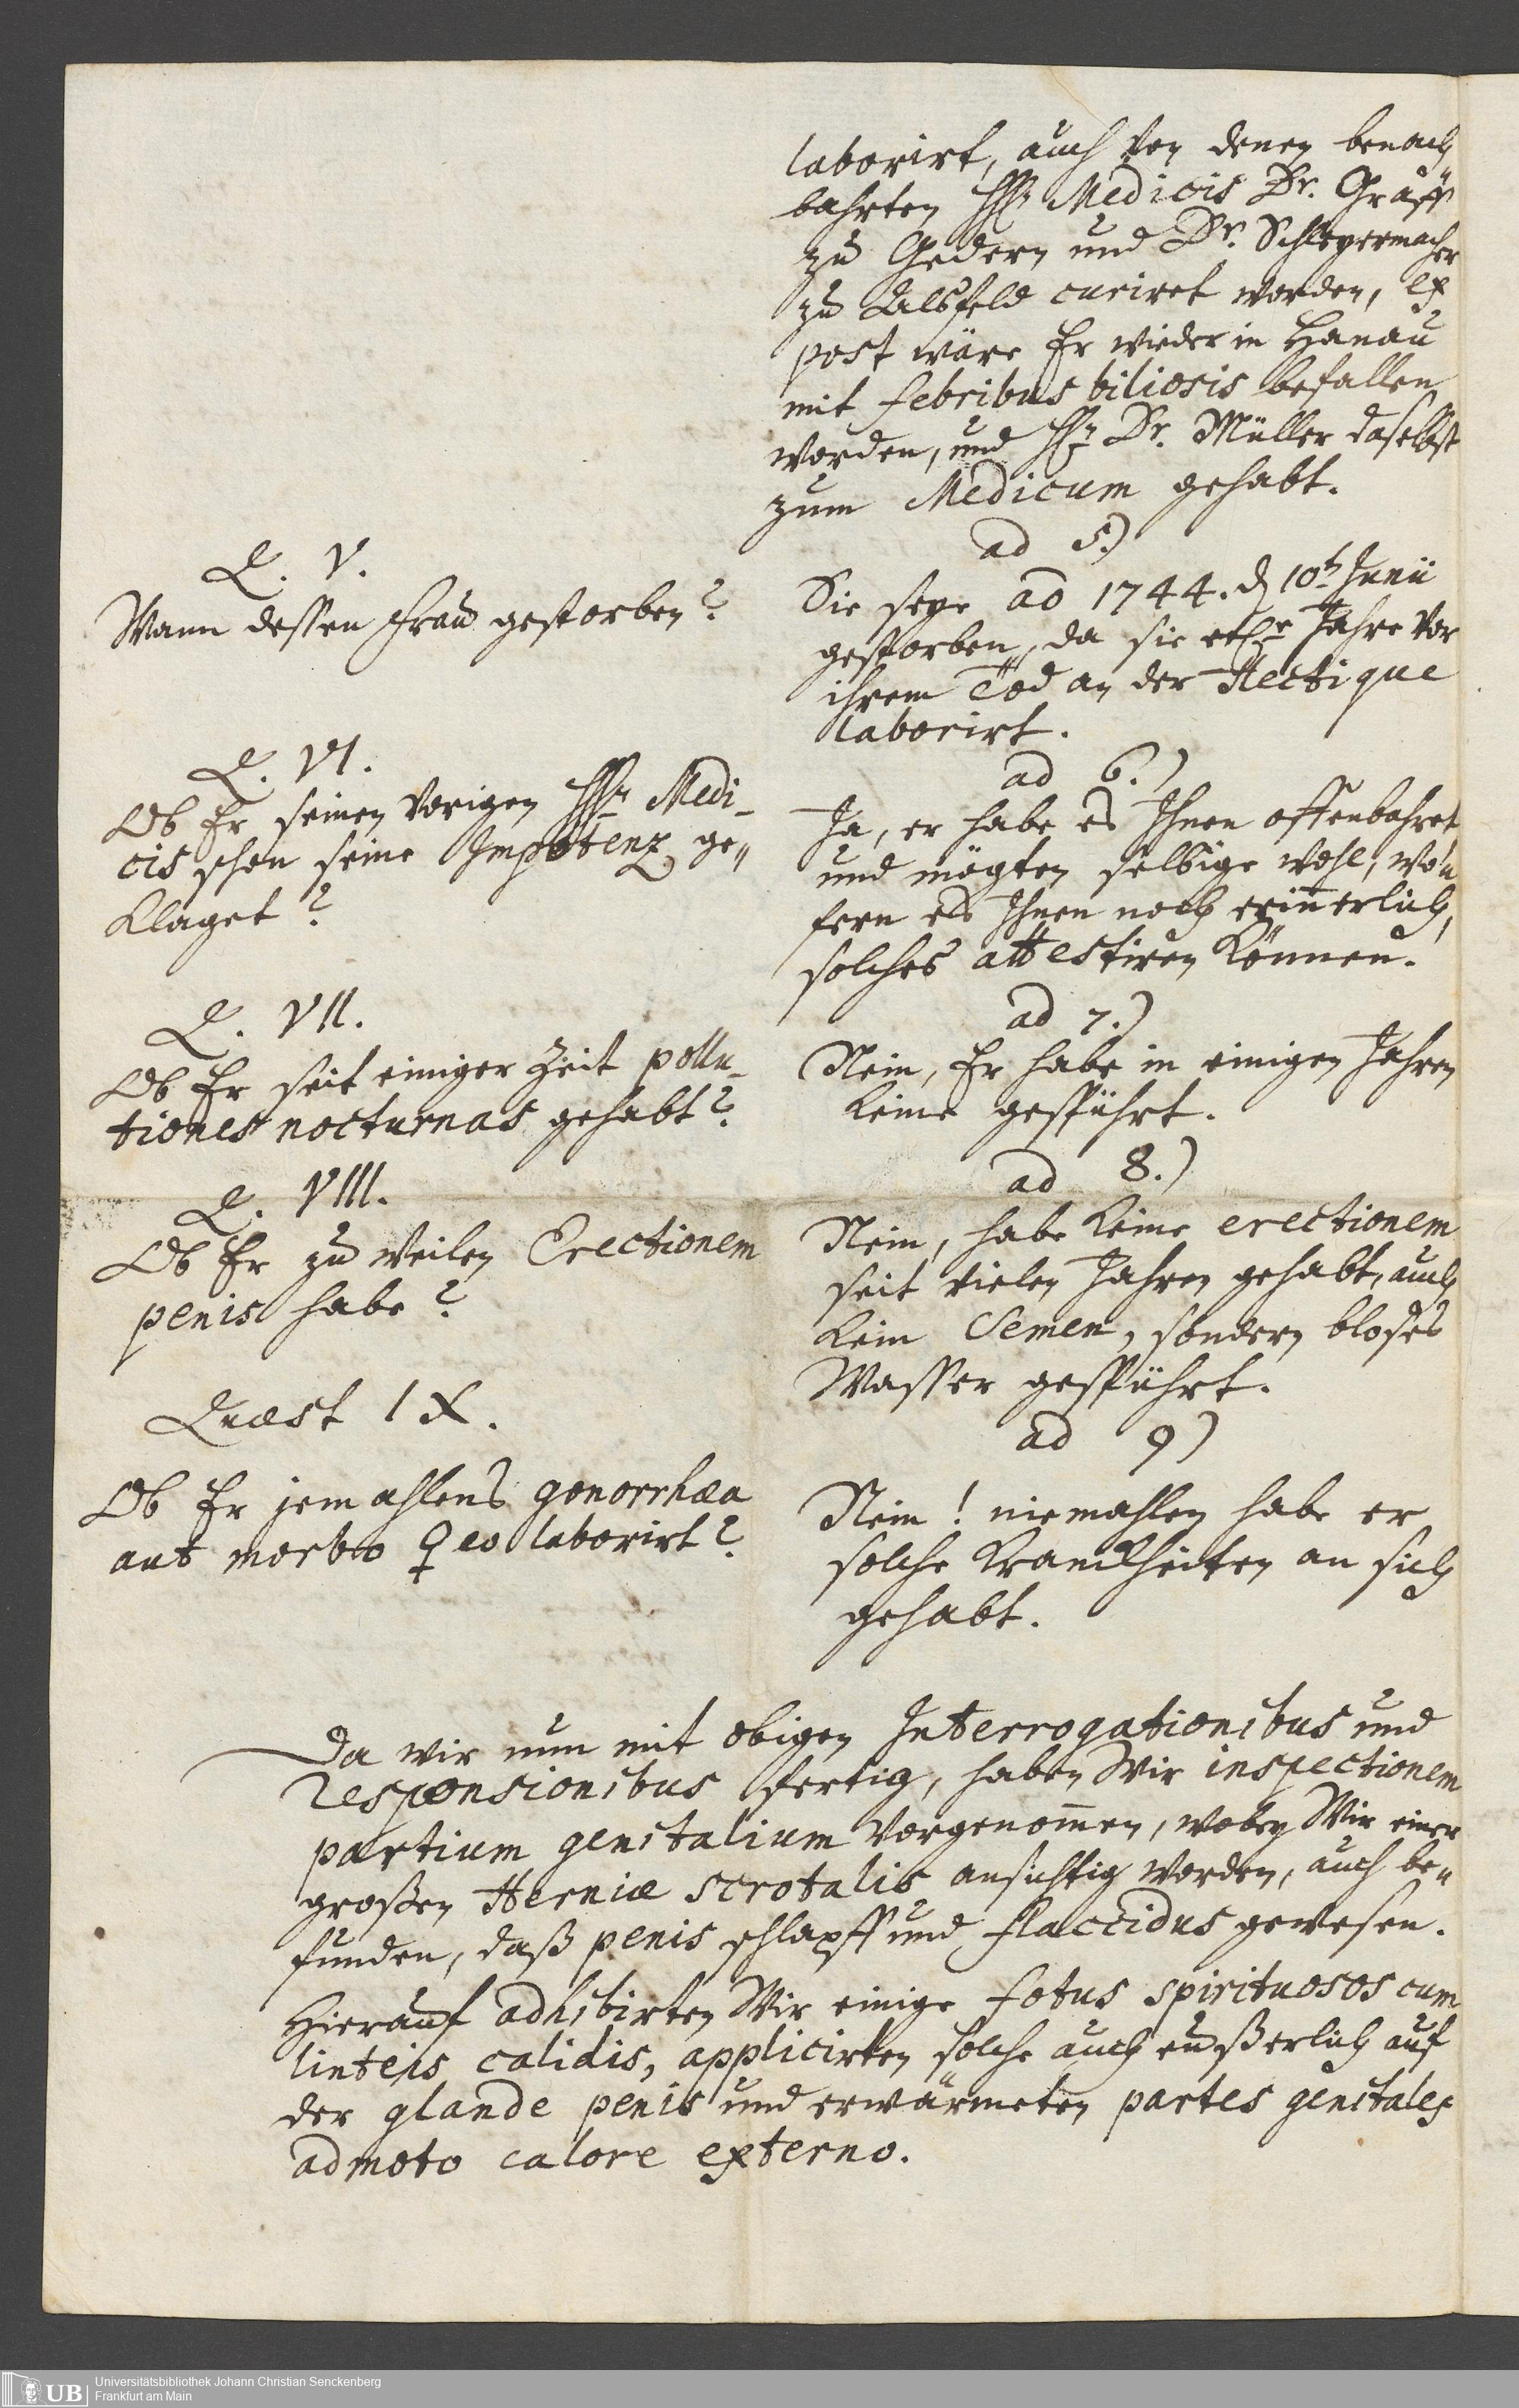 laborirt, auch von denen benach„
bahrten HH. Medicis Dr. Gräff
zu Gedern und Dr. Schleyermacher
zu Alsfeld curiret worden, ex
post wäre Er wieder in Hanau
mit febribus biliosis befallen
worden, und H. Dr. Müller daselbst
zum Medicum gehabt.
Q. V.
Wann dessen Frau gestorben?
ad 5.)
Sie seye ao 1744. d 10t Junii
gestorben, da sie Jahre vor
ihrem Tod an der Hectique
laborirt.
Q. VI.
Ob Er seinen vorigen HH. Medi-
cis schon seine Impotenz ge„
klaget?
ad 6.)
Ja, er habe es Ihnen offenbahret
und mögten selbige wohl, wo„
fern es Ihnen noch erin̄erlich,
solches attestiren können.
Q. VII.
Ob Er seit einiger Zeit pollu-
tiones nocturnas gehabt?
ad 7.)
Nein, Er habe in einigen Jahren
keine gespührt.
Q. VIII.
Ob Er zu weilen Erectionem
penis habe?
ad 8.)
Nein, habe keine erectionem
seit vielen Jahren gehabt, auch
kein Semen, sondern bloses
Wasser gespührt.
Quæst IX.
Ob Er jemahlens gonorrhæa
aut morbo ♀eo laborirt?
ad 9)
Nein! niemahlen habe er
solche Kranckheiten an sich
gehabt.
Da wir nun mit obigen Interrogationibus und
responsionibus fertig, haben Wir inspectionem
partium genitalium vorgenom̄en, wobey Wir einer
großen Herniæ scrotalis ansichtig worden, auch be„
funden, daß penis schlapff und flaccidus gewesen.
Hierauf adhibirten Wir einige fotus spirituosos cum
linteis calidis, applicirten solche auch eußerlich auf
der glande penis und erwärmeten partes genitales
admoto calore externo.
UB Universitätsbibliothek Johann Christian Senckenberg
Frankfurt am Main